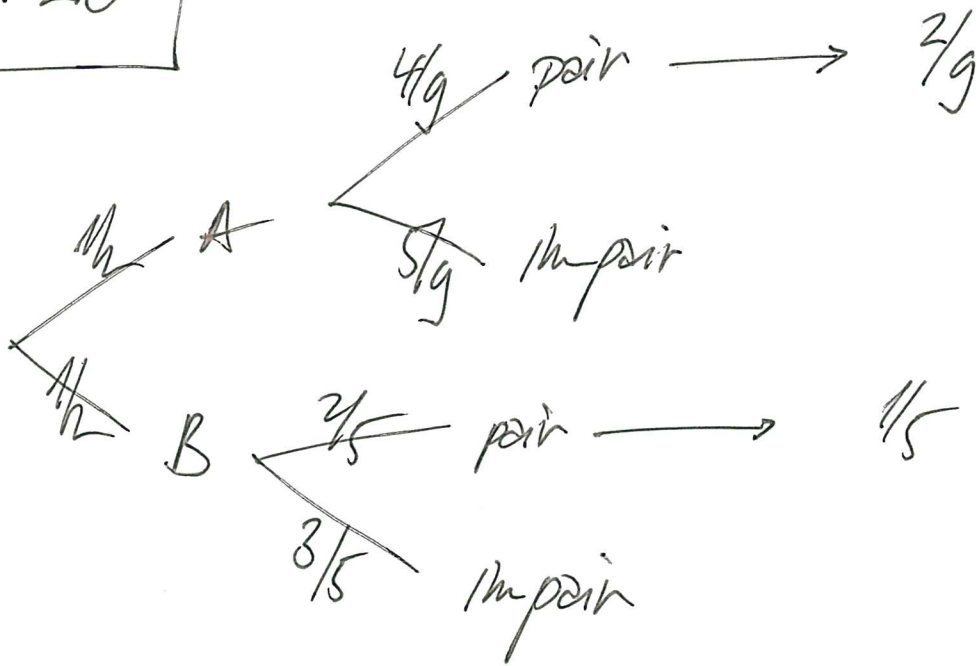 4/9 pair → 2/9
1/2 A
5/9 Impair
1/2 B 2/5 pair → 1/5
3/5 Impair